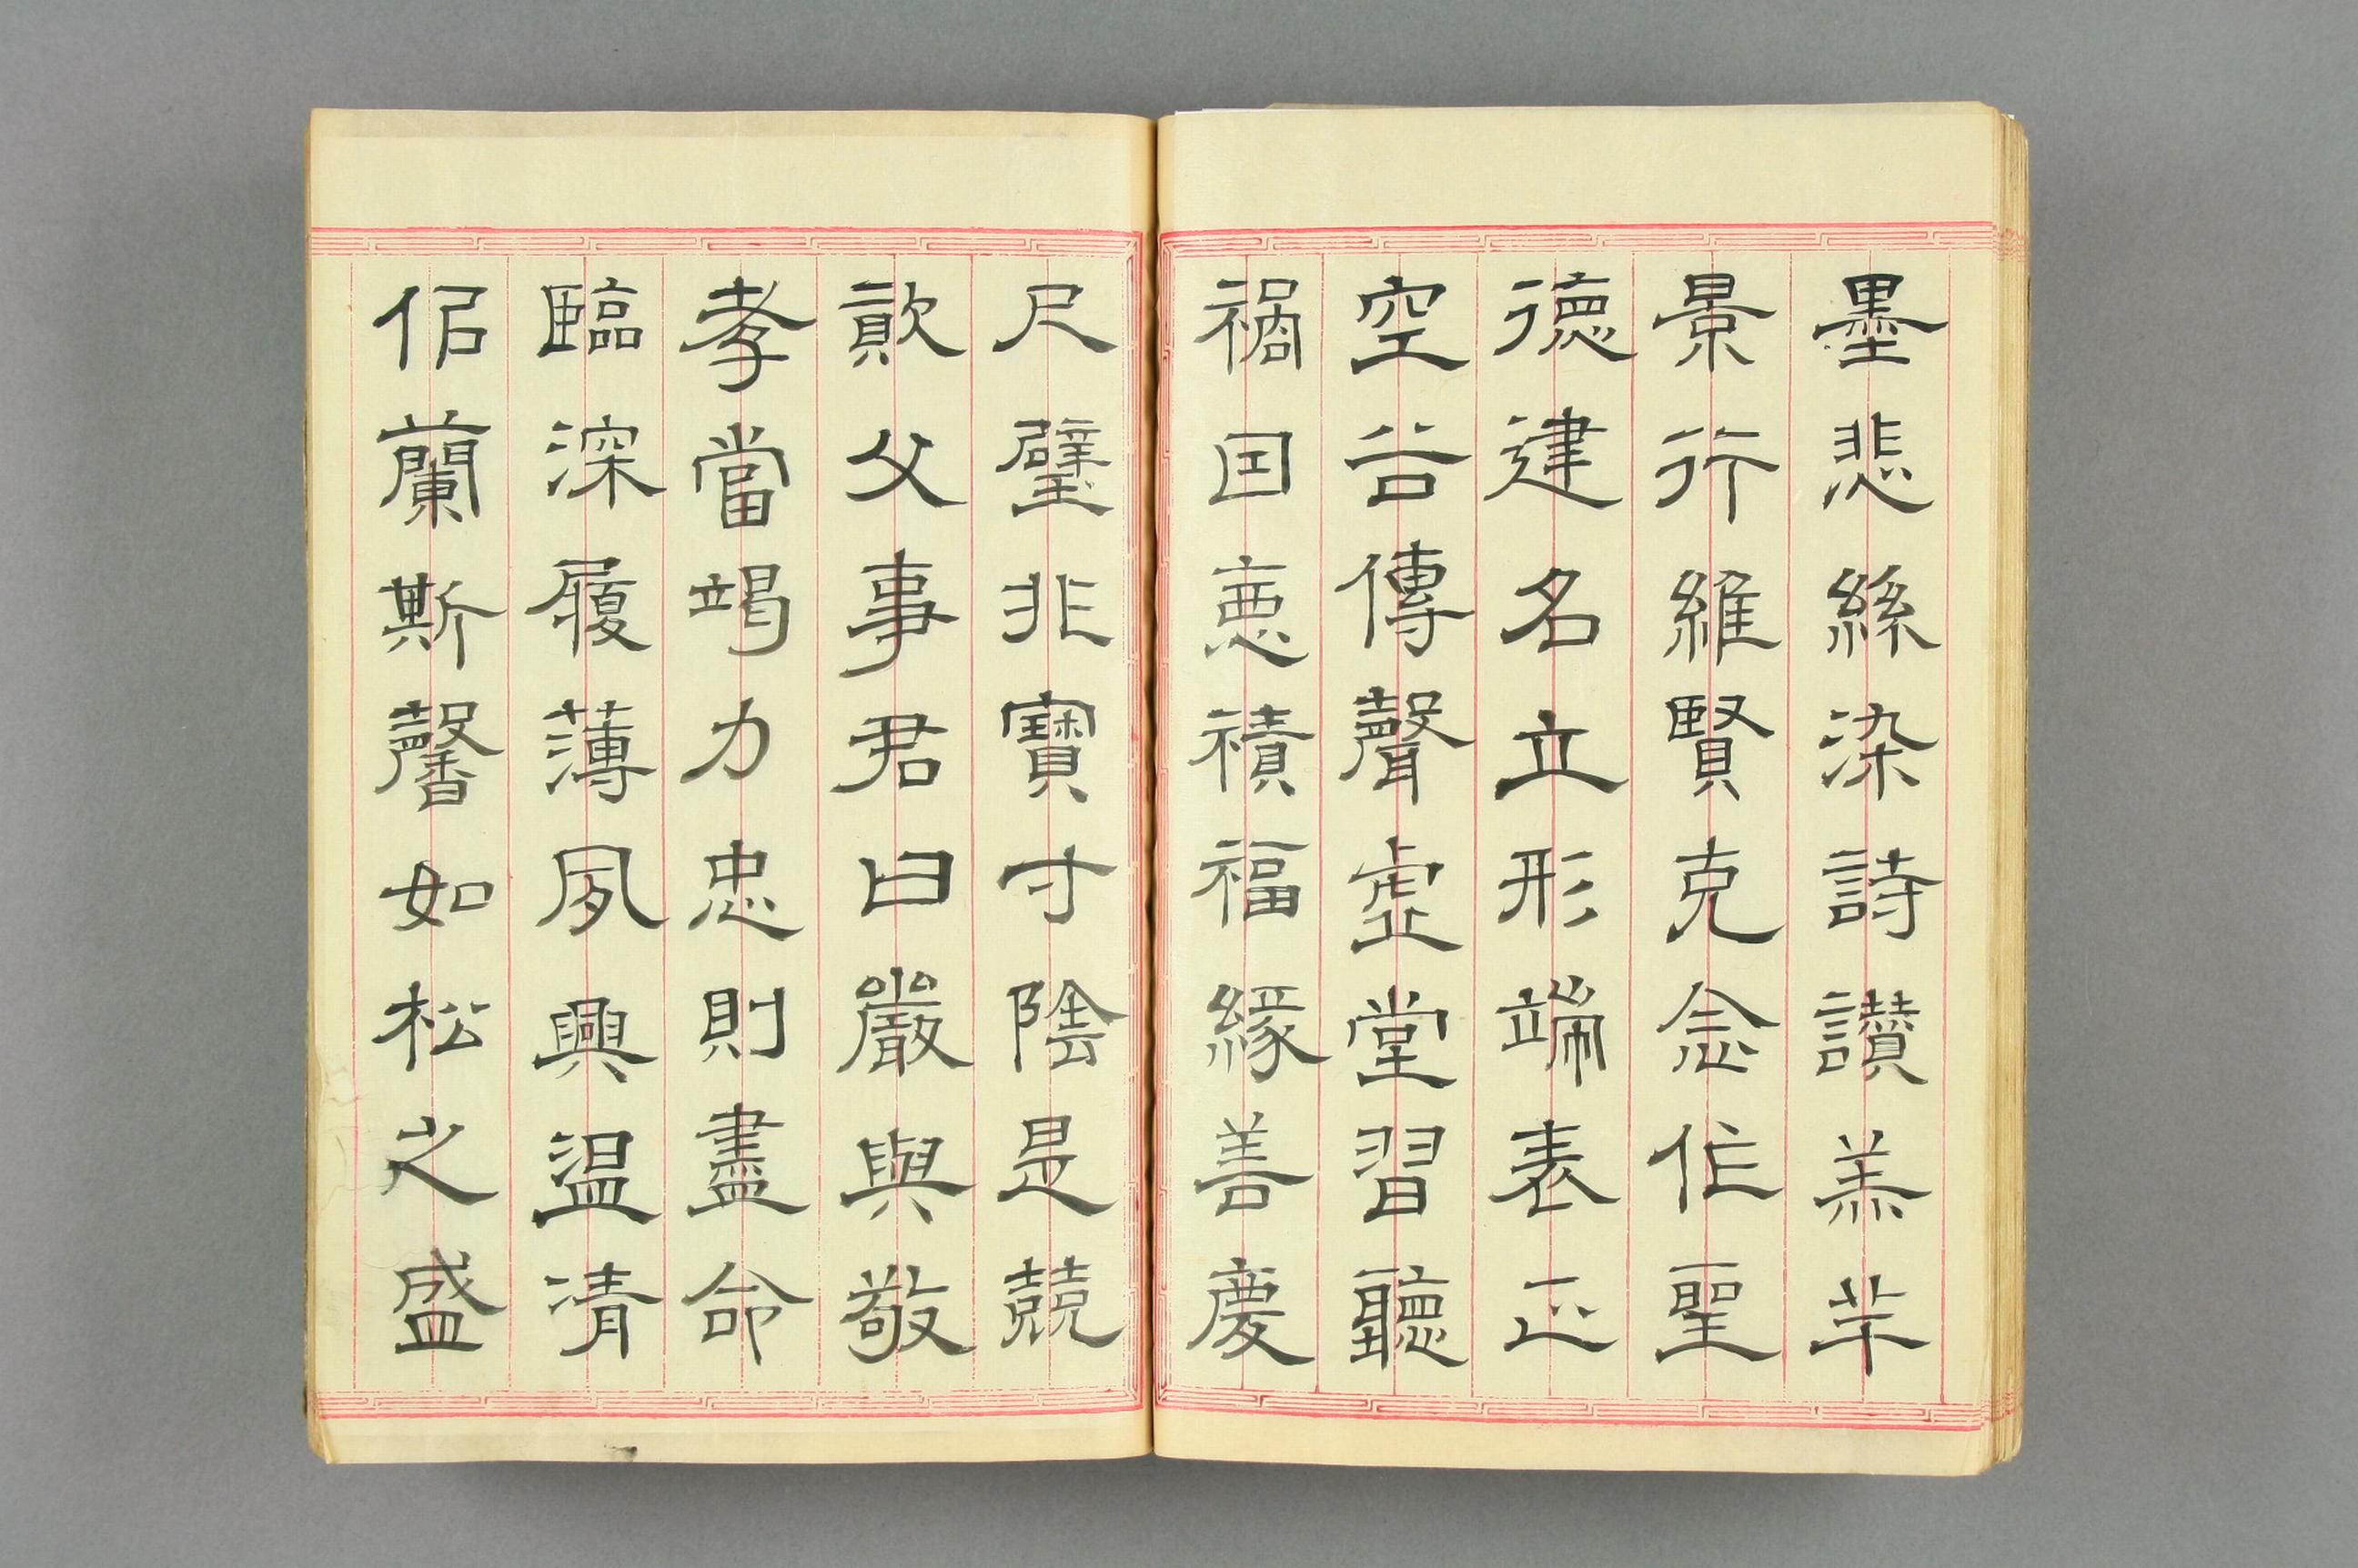 墨悲絲染詩讚羔羊
景行維賢克念作聖
德建名立形端表正
空谷傳聲虛堂習聽
禍因惡積福緣善慶
尺璧非寶寸陰是競
資父事君曰嚴與敬
孝當竭力忠則盡命
臨深履薄夙興溫凊
佀蘭斯馨如松之盛